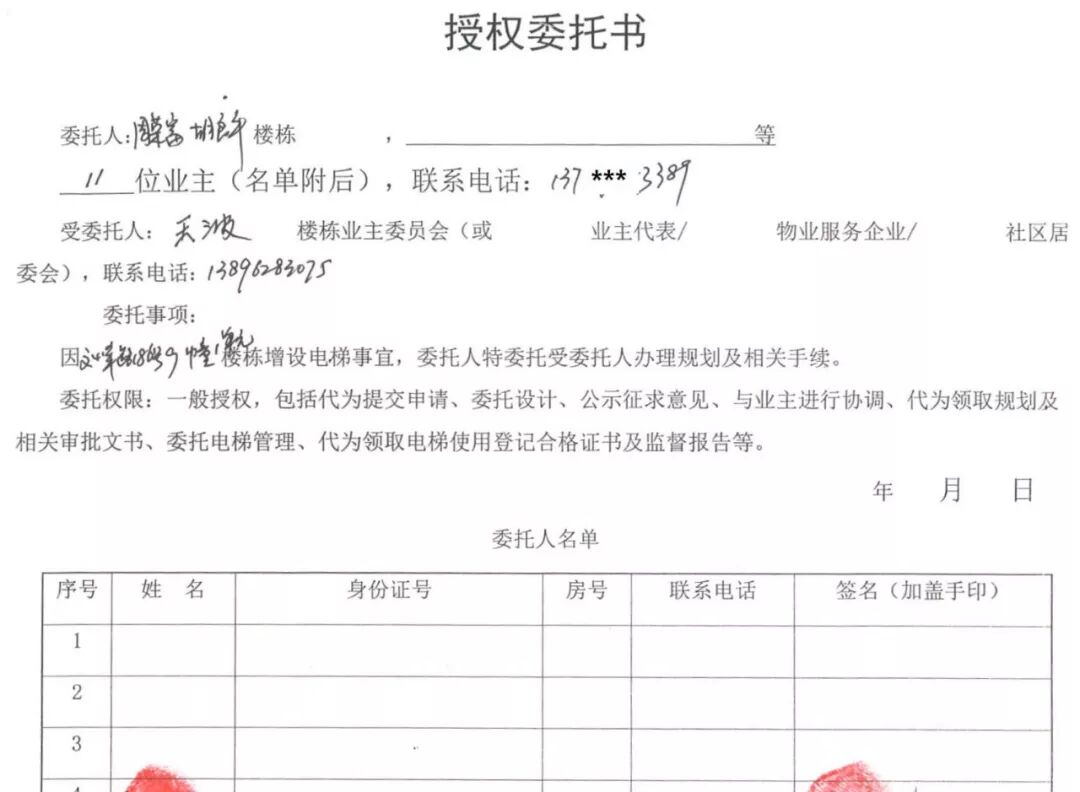 授权委托书
委托人： 楼栋 ， 等
11 位业主（名单附后），联系电话：137***3389
受委托人： 楼栋业主委员会（或 业主代表/ 物业服务企业/ 社区居
委会），联系电话：13896283075
委托事项：
因 楼栋增设电梯事宜，委托人特委托受委托人办理规划及相关手续。
委托权限：一般授权，包括代为提交申请、委托设计、公示征求意见、与业主进行协调、代为领取规划及
相关审批文书、委托电梯管理、代为领取电梯使用登记合格证书及监督报告等。
年 月 日
委托人名单
序号 姓 名 身份证号 房号 联系电话 签名（加盖手印）
1
2
3